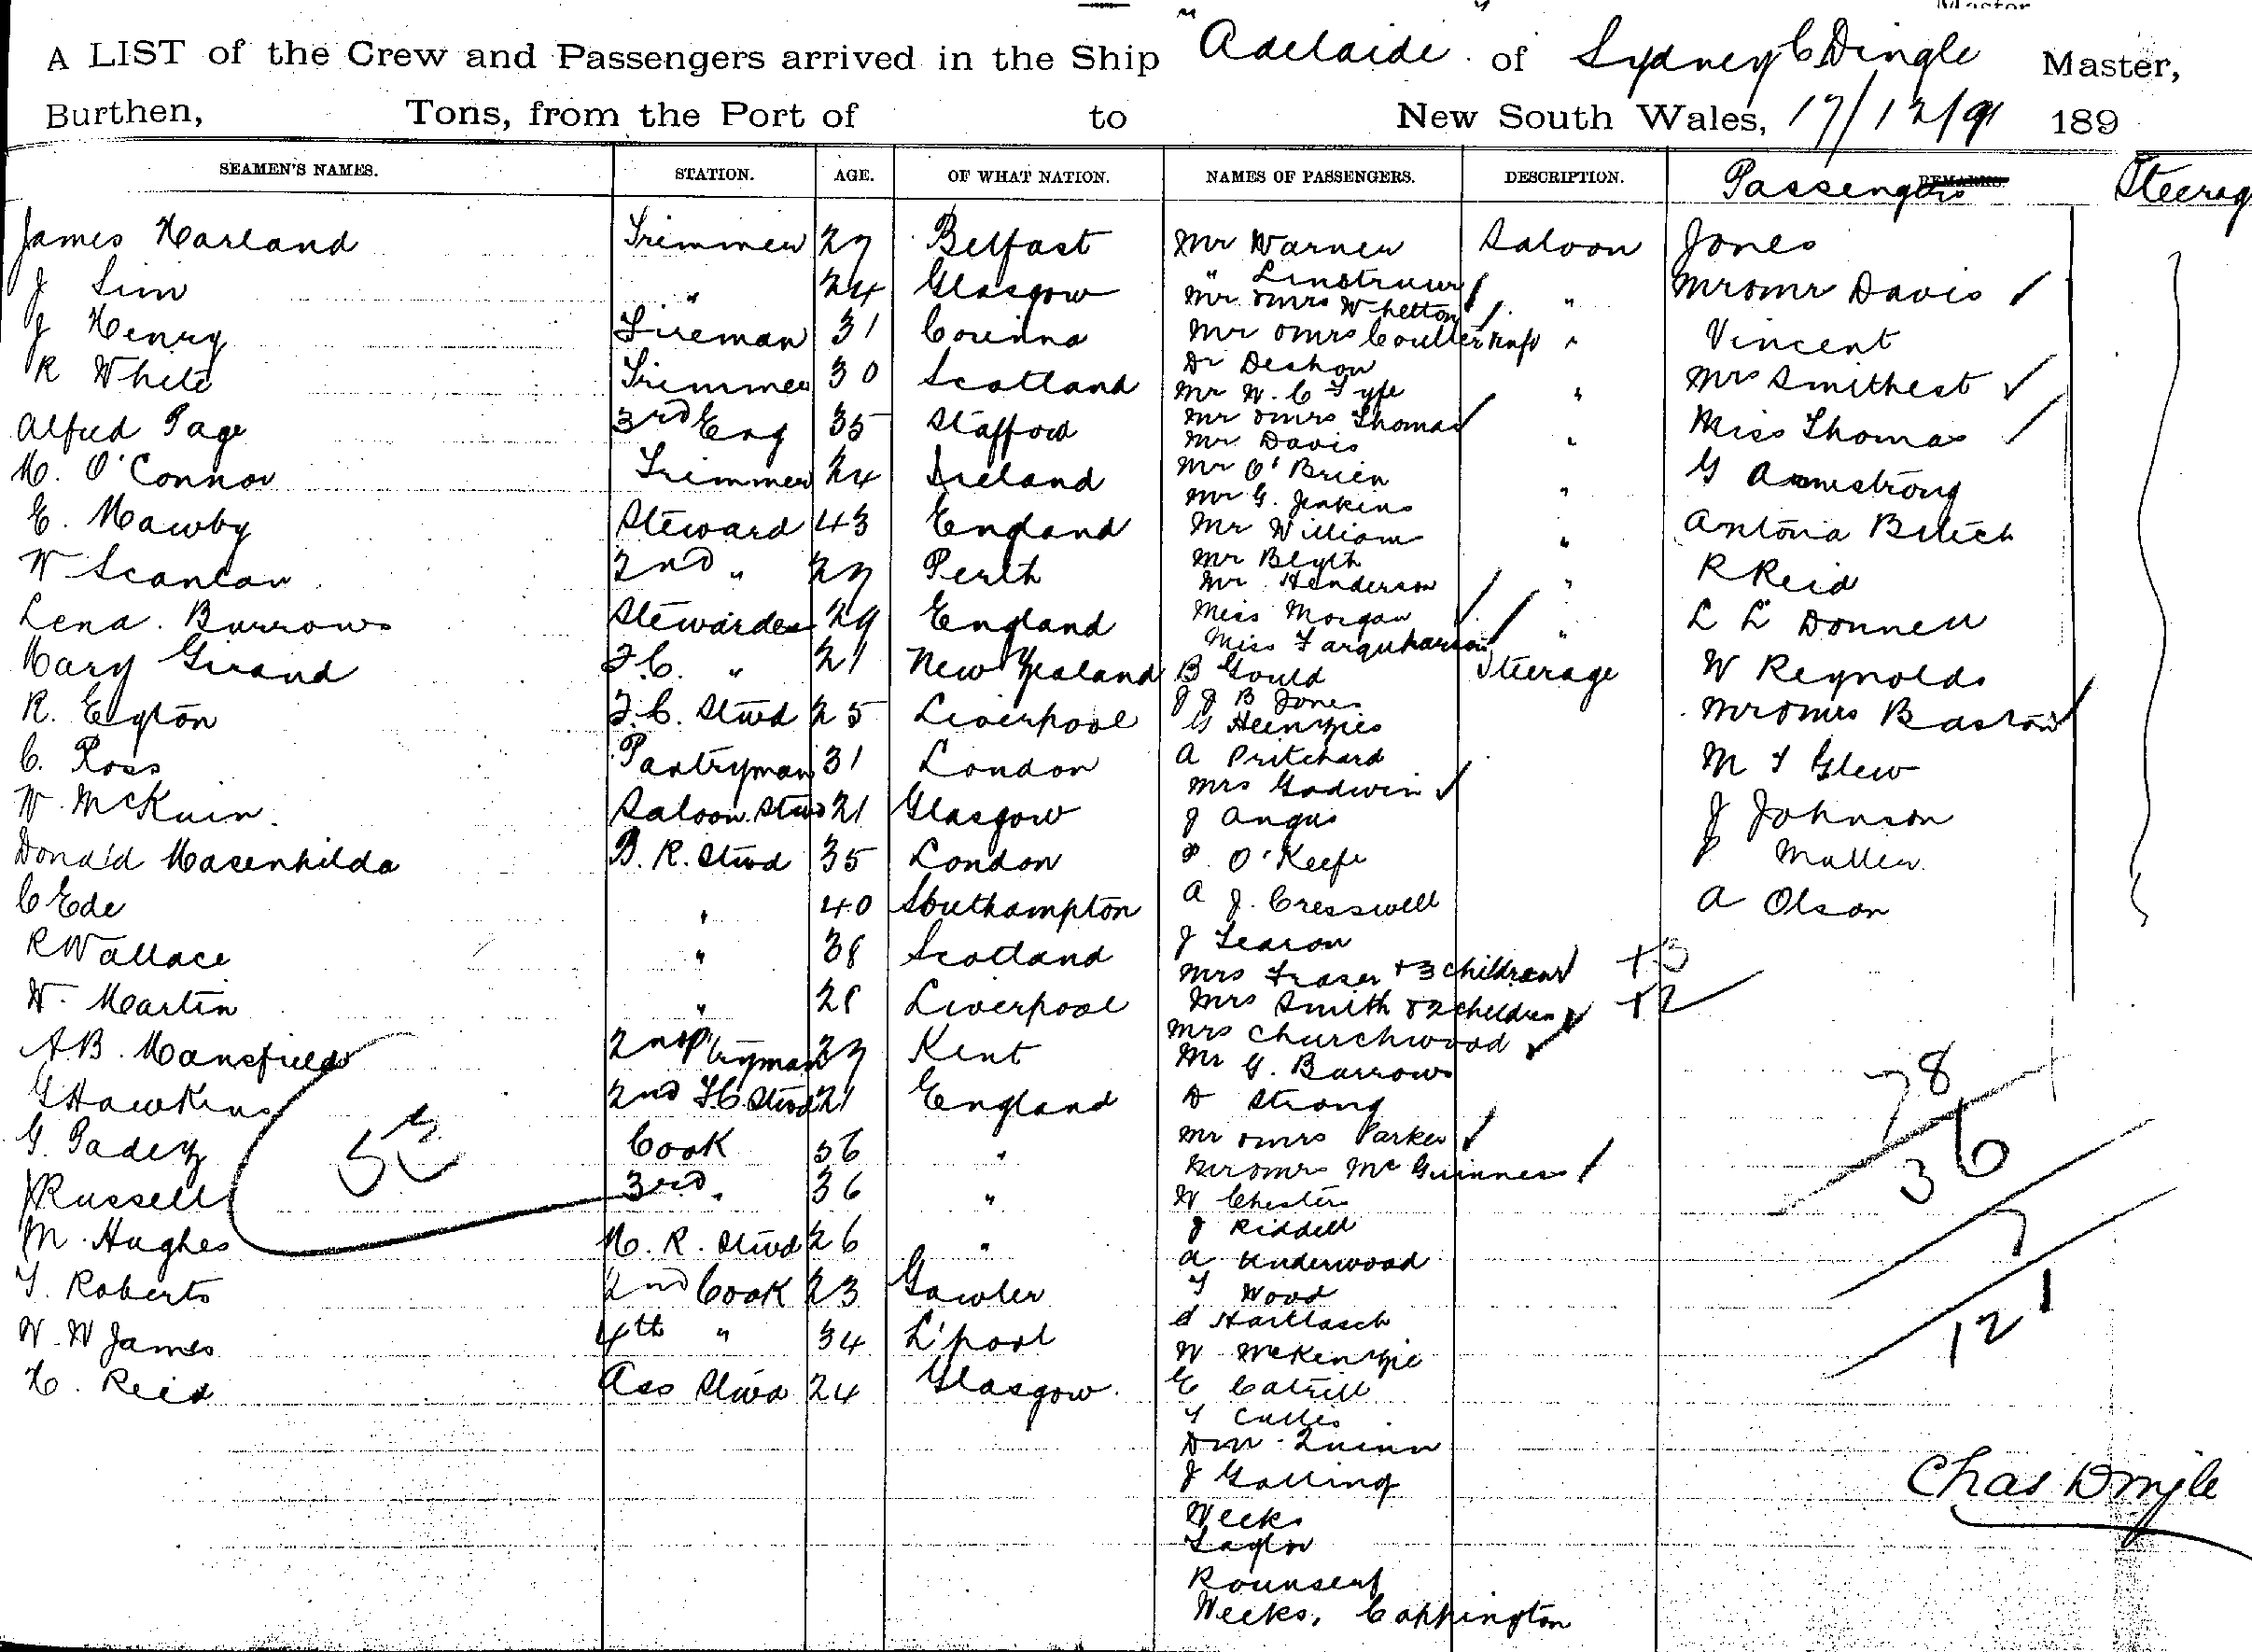 A LIST of the Crew and Passengers arrived in the Ship "Adelaide" of Sydney C Dingle Master,
Burthen, Tons, from the Port of to New South Wales, 17/12/91 189
SEAMEN'S NAMES. STATION. AGE. OF WHAT NATION. NAMES OF PASSENGERS. DESCRIPTION. Passengers REMARKS. Steerag
James Harland Trimmer 27 Belfast
J Sim " 24 Glasgow
J Henry Fireman 31 Corinna
R White Trimmer 30 Scotland
Alfred Page 3rd Eng 35 Stafford
M. O'Connor Trimmer 24 Ireland
E. Mawby Steward 43 England
W Scanlan 2nd " 27 Perth
Lena Burrows Stewardess 29 England
Mary Girand F.C. " 21 New Zealand
R. Eyton F.C. Stwd 25 Liverpool
C. Ross Pantryman 31 London
W. McKuin Saloon Stwd 21 Glasgow
Donald Masenhilda B.R. Stwd 35 London
C Ede " 40 Southampton
R Wallace " 38 Scotland
W. Martin " 28 Liverpool
A B. Mansfield 2nd P'tryman 27 Kent
G Hawkins 2nd F.C. Stwd 21 England
G. Padey Cook 56 "
J Russell 3rd " 36 "
M. Hughes M.R. Stwd 26 "
T. Roberts 2nd Cook 23 Gawler
W. W James 4th " 34 L'pool
H. Reid Ass Stwd 24 Glasgow
Mr Warner Saloon
" Linstruur
Mr & Mrs Whetton "
Mr & Mrs Coulter "
Dr Deshon
Mr W. C Fyfe "
Mr & Mrs Thomas
Mr Davis "
Mr O'Brien
Mr G. Jenkins "
Mr William "
Mr Blyth
Mr Henderson "
Miss Morgan
Miss Farquharson "
B Gould Steerage
J J B Jones
G Heinzies
A Pritchard
Mrs Godwin
J Angus
P. O'Keefe
A J. Cresswell
J Fearon
Mrs Fraser + 3 children +3
Mrs Smith & 2 children +2
Mrs Churchwood
Mr G. Burrows
D Strong
Mr & Mrs Parker
Mr & Mrs McGuinness
W Chester
J Riddell
A Underwood
T Wood
S Hartlasch
W McKenzie
E Catrill
T Cutles
D M Quinn
J Golling
Weeks
Taylor
Rounsenf
Weeks, Coppington
Jones
Mr & Mr Davis
Vincent
Mrs Smithest
Miss Thomas
G Armstrong
Antonia Bilich
R Reid
L L Donnell
W Reynolds
Mr & Mrs Barton
M T Glew
J Johnson
P Muller
A Olson
78
36
7
121
Chas Dingle